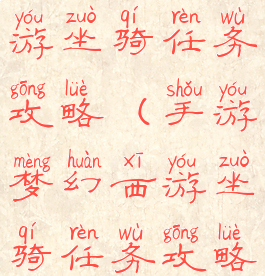 yóu zuò qí rèn wù
游坐骑任务
gōng lüè shǒu yóu
攻略(手游
mèng huàn xī yóu zuò
梦幻西游坐
qí rèn wù gōng lüè
骑任务攻略